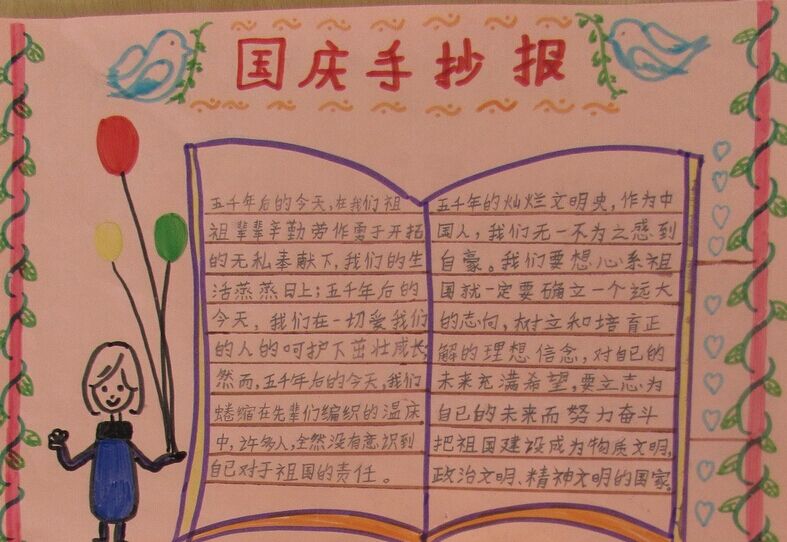 国庆手抄报
五千年后的今天,在我们祖
祖辈辈辛勤劳作勇于开拓
的无私奉献下,我们的生
活蒸蒸日上;五千年后的
今天,我们在一切爱我们
的人的呵护下茁壮成长;
然而,五千年后的今天,我们
蜷缩在先辈们编织的温床
中,许多人,全然没有意识到
自己对于祖国的责任。
五千年的灿烂文明史,作为中
国人,我们无一不为之感到
自豪。我们要想心系祖
国就一定要确立一个远大
的志向,树立和培育正
解的理想信念,对自己的
未来充满希望,要立志为
自己的未来而努力奋斗
把祖国建设成为物质文明,
政治文明、精神文明的国家。